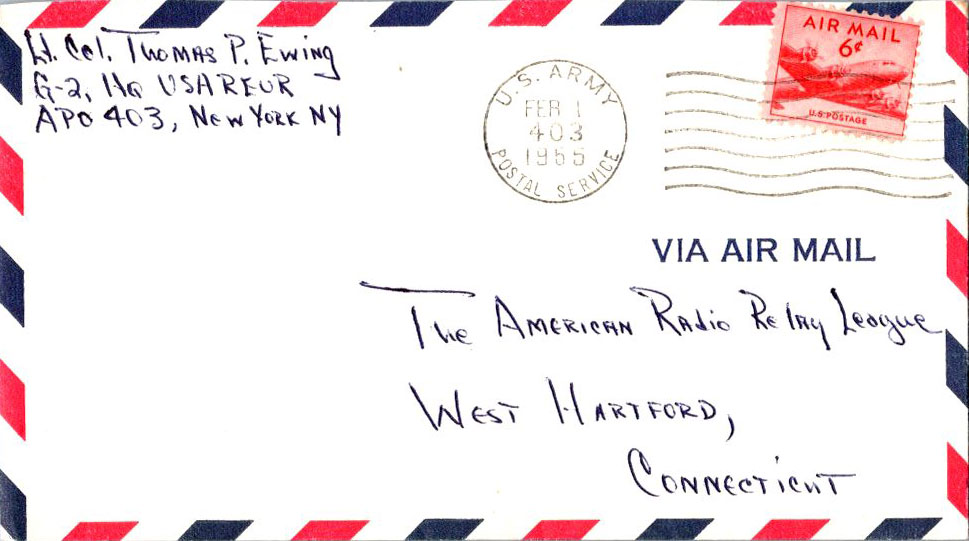 Lt. Col. Thomas P. Ewing
G-2, HQ USAREUR
APO 403, New York NY
U.S. ARMY
FEB 1
403
1955
POSTAL SERVICE
AIR MAIL
6¢
U.S. POSTAGE
VIA AIR MAIL
The American Radio Relay League
West Hartford,
Connecticut